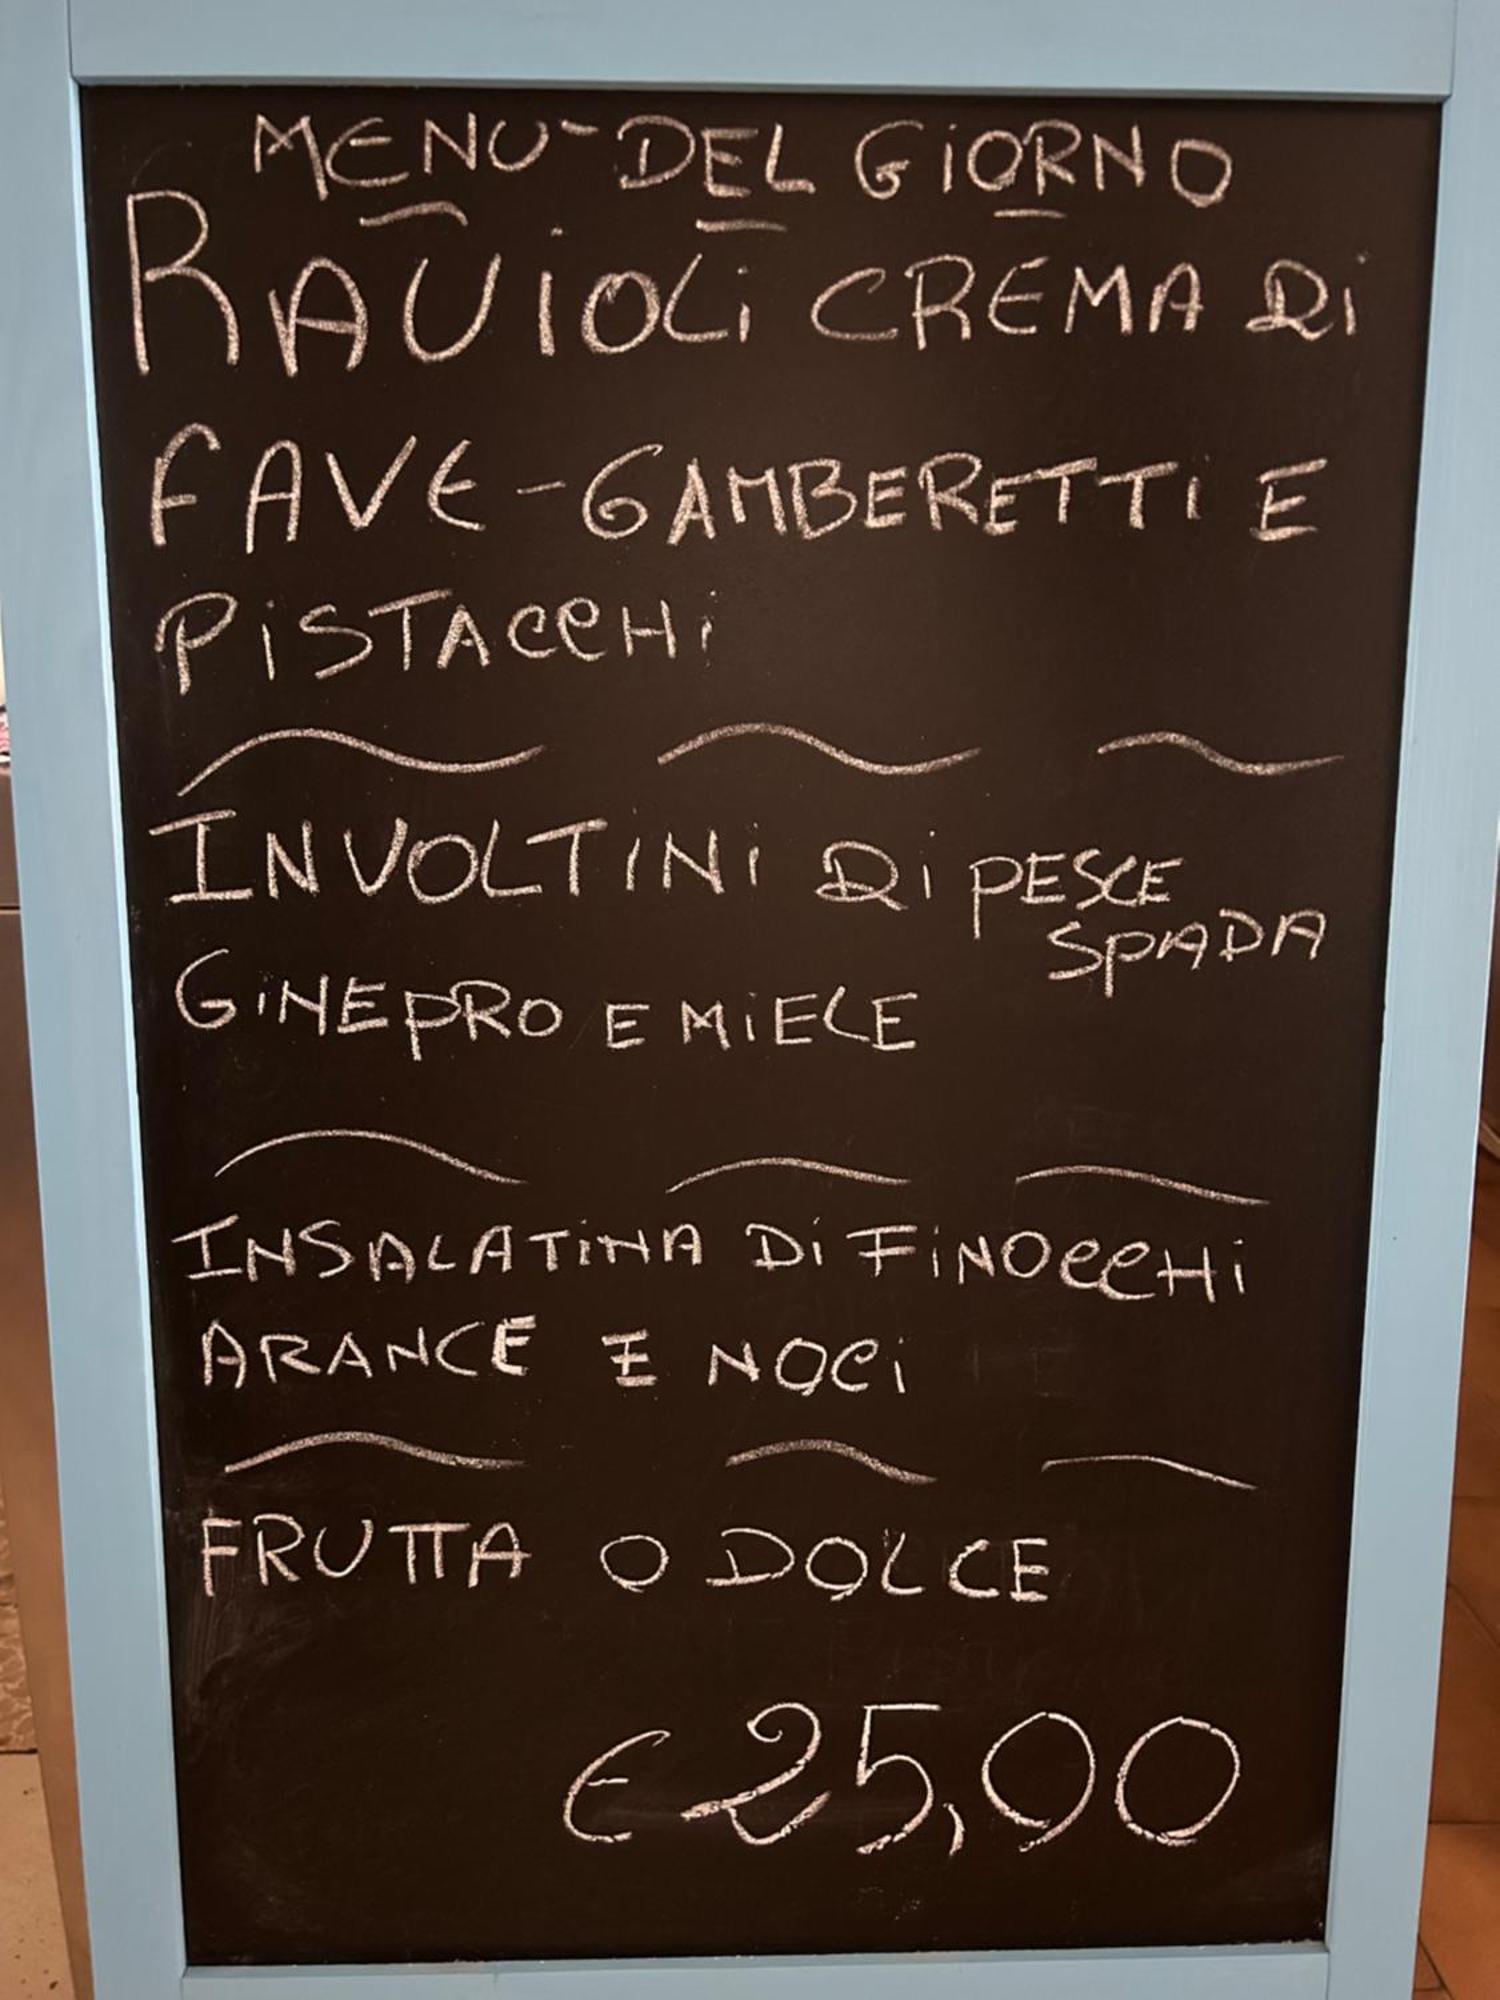 MENU- DEL GiORNO
RAViOLi CREMA Di
FAVE-GAMBERETTi E
PiSTACCHi
INVOLTiNi Di PESCE
SPADA
GiNEPRO E MiELE
INSALATiNA Di FiNOCCHi
ARANCE E NOCi
FRUTTA O DOLCE
€ 25,00